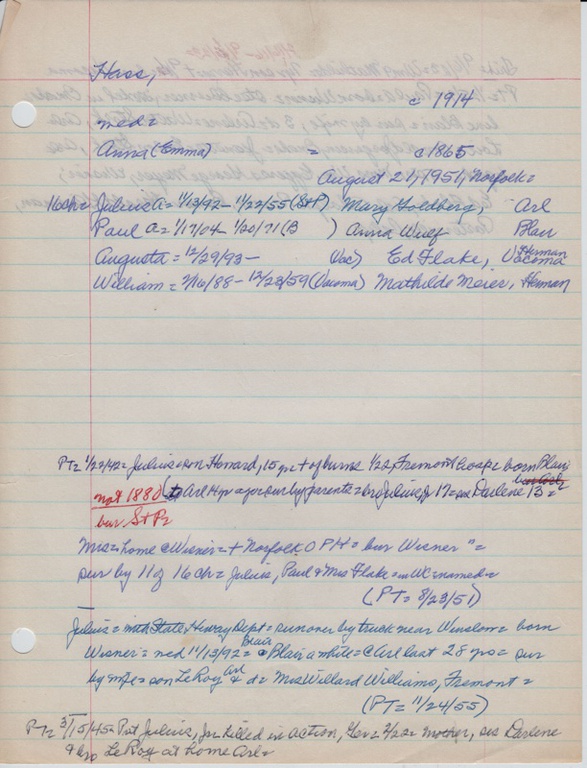 Hass,
c 1914
med =
Anna (Emma) = c 1865
August 21, 1951, Norfolk =
16ch = Julius a = 1/13/92 - 11/22/55 (St P) Mary Goldberg, Arl
Paul a = 1/17/04 - 1/20/71 (B ) Anna Wulf Blair
Augusta = 12/29/93 - (Vac) Ed Flake, Herman Vacoma
William = 2/16/88 - 12/23/59 (Vacoma) Mathilde Meier, Herman
PT = 1/29/42 = Julius son Howard, 15 yr = + of burns 1/22, Fremont hosp = born Blair
not 1880 to Arl 14 yr ago = sur by parents = br Julius, Jr 17 = sis Darlene 13 =
bur St P =
Mrs = home c Wisner = + Norfolk O P H = bur Wisner " =
sur by 11 of 16 ch = Julius, Paul & Mrs Flake = in WC = named =
(PT = 8/23/51)
Julius = with State Hiway Dept = run over by truck near Winslow = born
Wisner = ned 11/13/92 = c Blair a while = c Arl last 28 yrs = sur
by wife = son LeRoy Arl & d = Mrs Willard Williams, Fremont =
(PT = 11/24/55)
PT = 3/15/45 = Pvt Julius, Jr = killed in action, Ger = 2/22 = mother, sis Darlene
& bro LeRoy at home Arl =